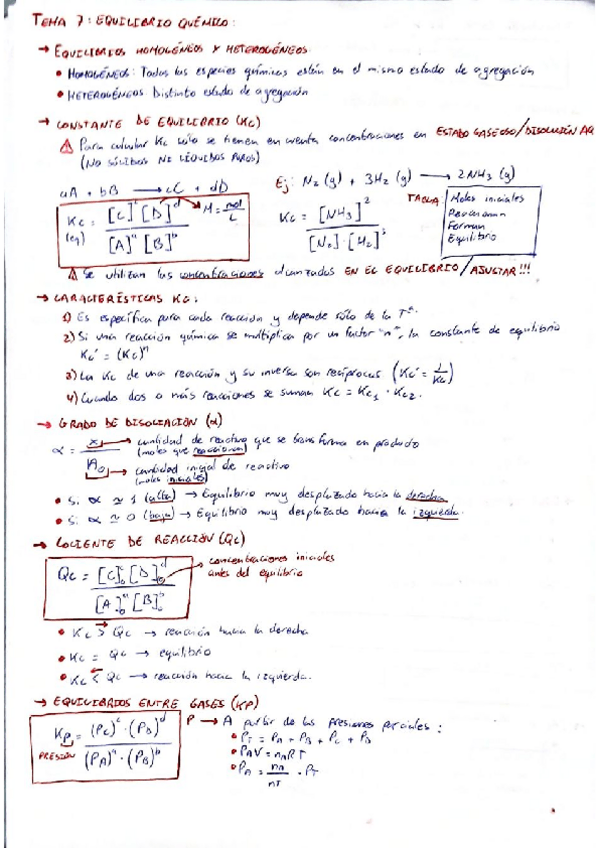 TEMA 7: EQUILIBRIO QUÍMICO:
→ EQUILIBRIOS HOMOGÉNEOS Y HETEROGÉNEOS.
• HOMOGÉNEOS: Todas las especies químicas están en el mismo estado de agregación
• HETEROGÉNEOS: Distinto estado de agregación
→ CONSTANTE DE EQUILIBRIO (Kc)
⚠ Para calcular Kc sólo se tienen en cuenta concentraciones en ESTADO GASEOSO/DISOLUCIÓN AQ
(NO SÓLIDOS NI LÍQUIDOS PUROS)
aA + bB → cC + dD
Kc (eq) = [C]^c [D]^d / [A]^a [B]^b
M = mol/L
Ej: N2 (g) + 3H2 (g) → 2NH3 (g)
Kc = [NH3]^2 / [N2]·[H2]^3
TABLA
Moles iniciales
Reaccionan
Forman
Equilibrio
⚠ Se utilizan las concentraciones alcanzadas EN EL EQUILIBRIO/AJUSTAR!!!
→ CARACTERÍSTICAS Kc:
1) Es específica para cada reacción y depende sólo de la Tª.
2) Si una reacción química se multiplica por un factor "n", la constante de equilibrio
Kc' = (Kc)^n
3) La Kc de una reacción y su inversa son recíprocas (Kc' = 1/Kc)
4) Cuando dos o más reacciones se suman Kc = Kc1 · Kc2.
→ GRADO DE DISOCIACIÓN (α)
α = x / n0
→ cantidad de reactivo que se transforma en producto
(moles que reaccionan)
→ cantidad inicial de reactivo
(moles iniciales)
• Si α ≃ 1 (alta) → Equilibrio muy desplazado hacia la derecha
• Si α ≃ 0 (baja) → Equilibrio muy desplazado hacia la izquierda.
→ COCIENTE DE REACCIÓN (Qc)
Qc = [C]0^c [D]0^d / [A]0^a [B]0^b
→ concentraciones iniciales
antes del equilibrio
• Kc > Qc → reacción hacia la derecha
• Kc = Qc → equilibrio
• Kc < Qc → reacción hacia la izquierda.
→ EQUILIBRIOS ENTRE GASES (KP)
Kp = (PC)^c · (PD)^d / (PA)^a · (PB)^b
PRESIÓN
P → A partir de las presiones parciales:
• PT = PA + PB + PC + PD
• PAV = nART
• PA = nA/nT · PT